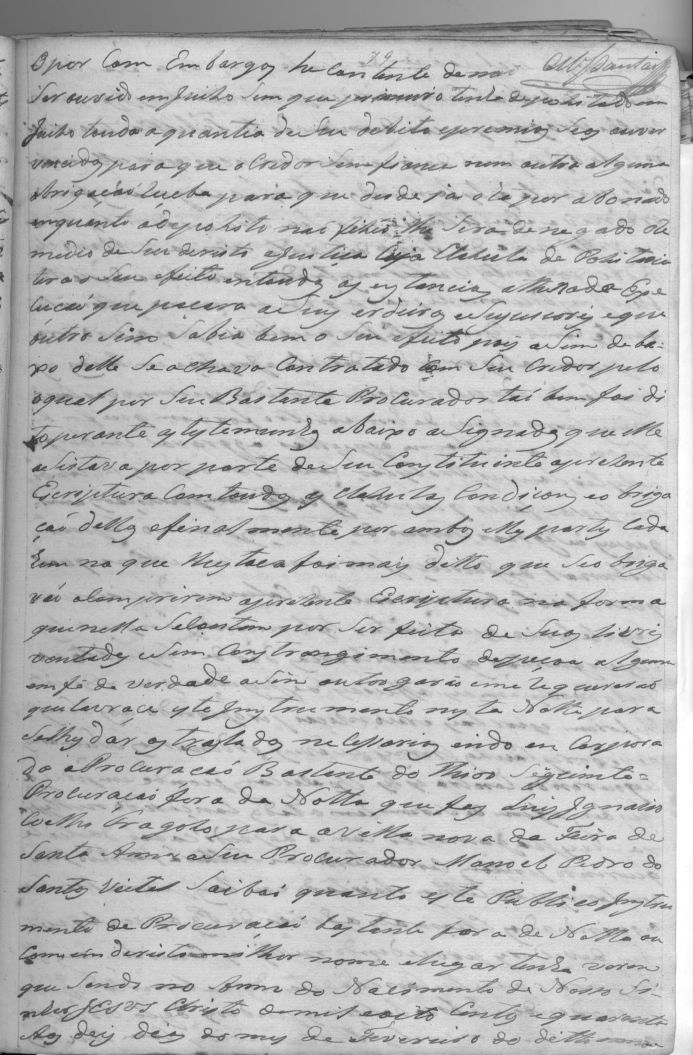 Opor Com Embargos he contente de nao
Ser ouvido em Juiho Sem que primeiro tenha depozitado em
Juiho touda a quantia de Seu debito e premios Se os ouver
vencidos, para que o Credor Sem fiansa nem outra alguma
obrigação Receba para que desde ja o ha por abonado
emquanto a depozito nao fizer lhe Sera denegado o Re
medio de Seu dereito e Justica Cuja Clauzula de Pozitaria
e Seu efeito entendo as
que pacara a Seus erdeiros e Suçuçores e que
outro Sim Sabia bem o Seu efeito pois aSim deba-
xo delle Se achava Contratado Com Seu Credor pelo
o qual por Seu Bastante Procurador tai bem foi di
to perante as testemunhas abaixo aSignadas que elle
aSeitava por parte de Seu Constituinte a prezente
Escriptura Com toudas as Clauzulas Condiçoins e obriga
caõ della e final mente por ambos elles partes Cada
hum no que lhes toca foi mais ditto que Se obriga
vaõ a Comprirem a prezente Escriptura na forma
que nella Se Contem por Ser feita de Suas livres
vontades e Sem Constrangimento de peçoa alguma
em fé de verdade aSim outorgaraõ e me requereraõ
que lavrace este Instrumento nesta Notta para
Selhes dar os traslados neceSsarios indo en Corpora
da a Procuracaõ Bastante do thior Seguinte =
Procuracaõ fora da Notta que faz Luis Ignacio
Coelho Fragozo, para a villa nova da Feira de
Santa Anna a Seu Procurador Manoel Pedro do
Santos Saibaõ quanto este Publico Instru
mento de Procuracaõ bastante fora de Notta ou
Como em dereito milhor nome e lugar tenha virem
que Sendo no Anno do Nacimento de Nosso Se-
nhor JESUS Christo de mil e oito Centos e quarenta
Aos dez dias do mes de Fevereiro do ditto anno